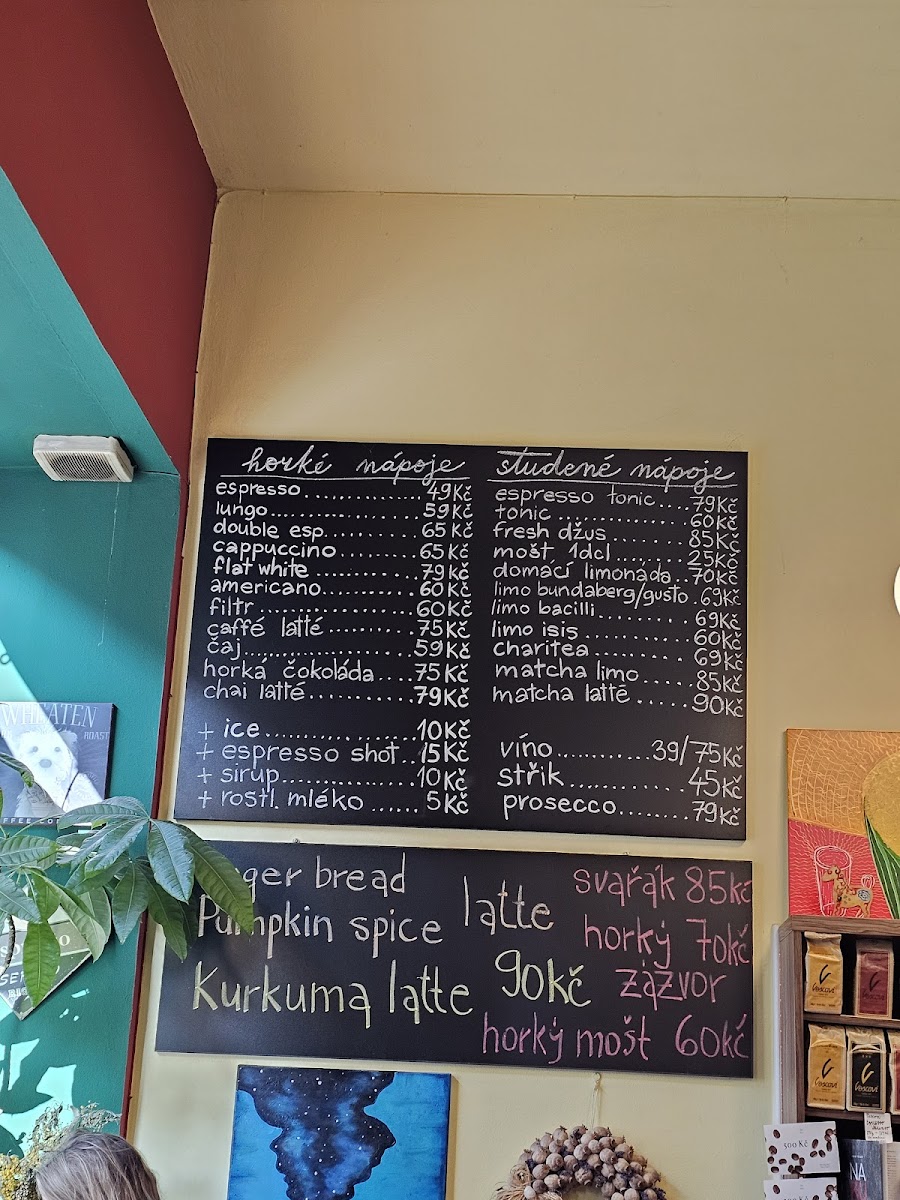 horké nápoje
espresso................49Kč
lungo....................59Kč
double esp.............65Kč
cappuccino...........65Kč
flat white...............79Kč
americano.............60Kč
filtr.......................60Kč
caffé latté.............75Kč
čaj........................59Kč
horká čokoláda.....75Kč
chai latté..............79Kč
+ ice.....................10Kč
+ espresso shot..15Kč
+ sirup..................10Kč
+ rostl. mléko......5Kč
studené nápoje
espresso tonic....79Kč
tonic....................60Kč
fresh džus...........85Kč
mošt 1dcl............25Kč
domácí limonáda..70Kč
limo bundaberg/gusto.69Kč
limo bacilli...........69Kč
limo isis...............60Kč
charitea...............69Kč
matcha limo........85Kč
matcha latté........90Kč
víno...........39/75Kč
střik..................45Kč
prosecco.........79Kč
ger bread
Pumpkin spice latte
Kurkuma latte 90Kč
svařák 85kč
horký 70kč
zázvor
horký mošt 60kč
WHEATEN
ROAST
Vescovi
Vescovi
Vescovi
Vescovi
500 Kč
NA